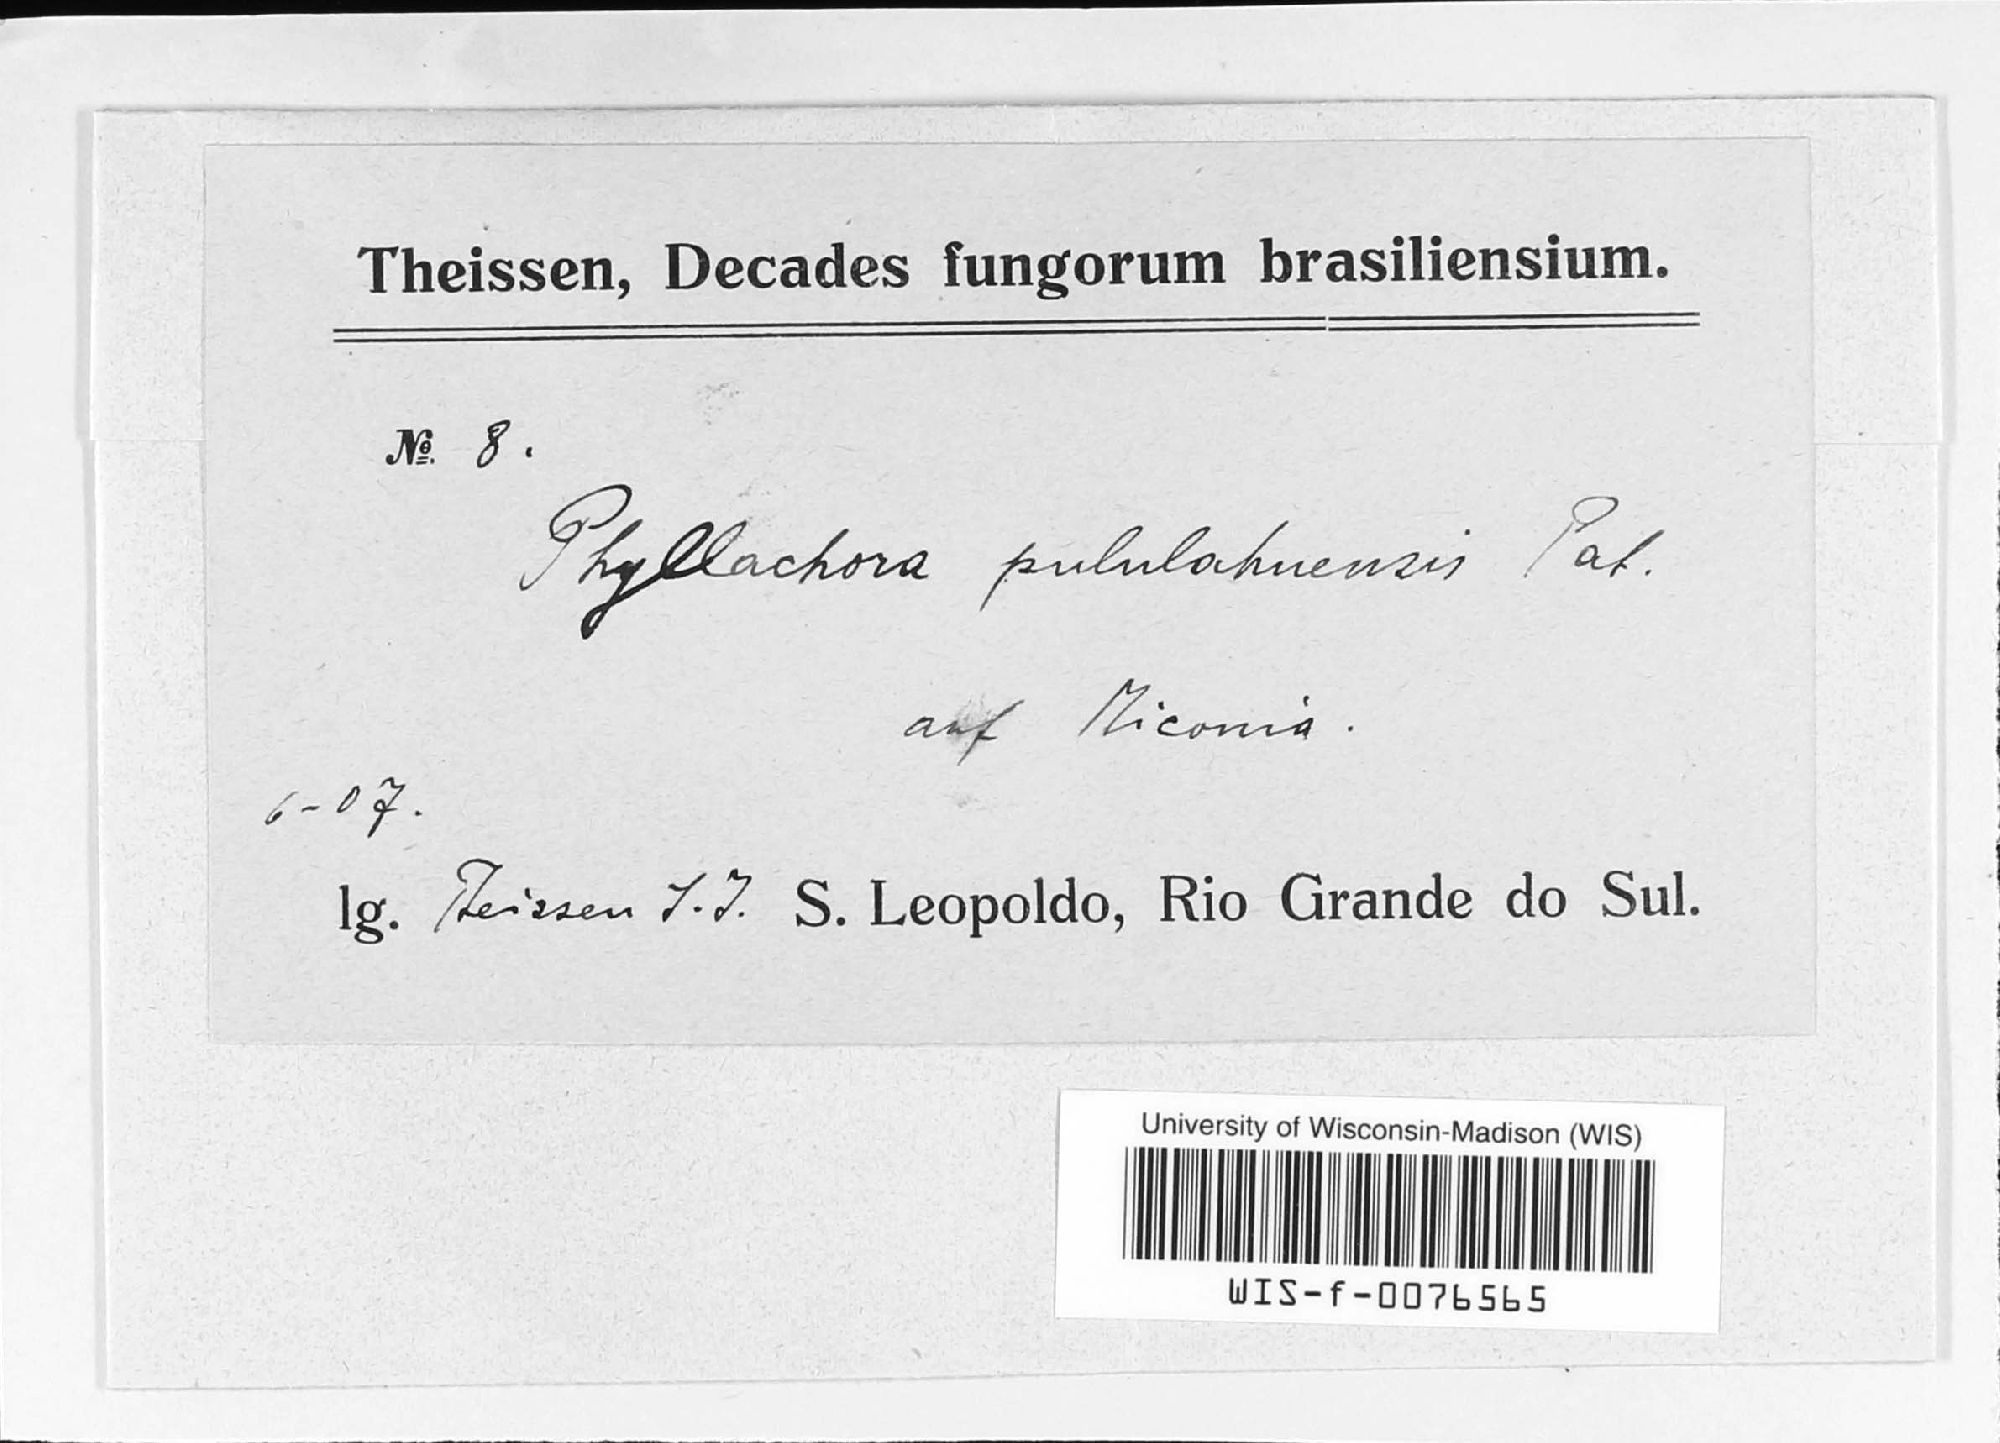 Theissen, Decades fungorum brasiliensium.
№ 8.
Phyllachora pululahuensis Pat.
auf Miconia.
6-07.
lg. Theissen S.J. S. Leopoldo, Rio Grande do Sul.
University of Wisconsin-Madison (WIS)
WIS-f-0076565